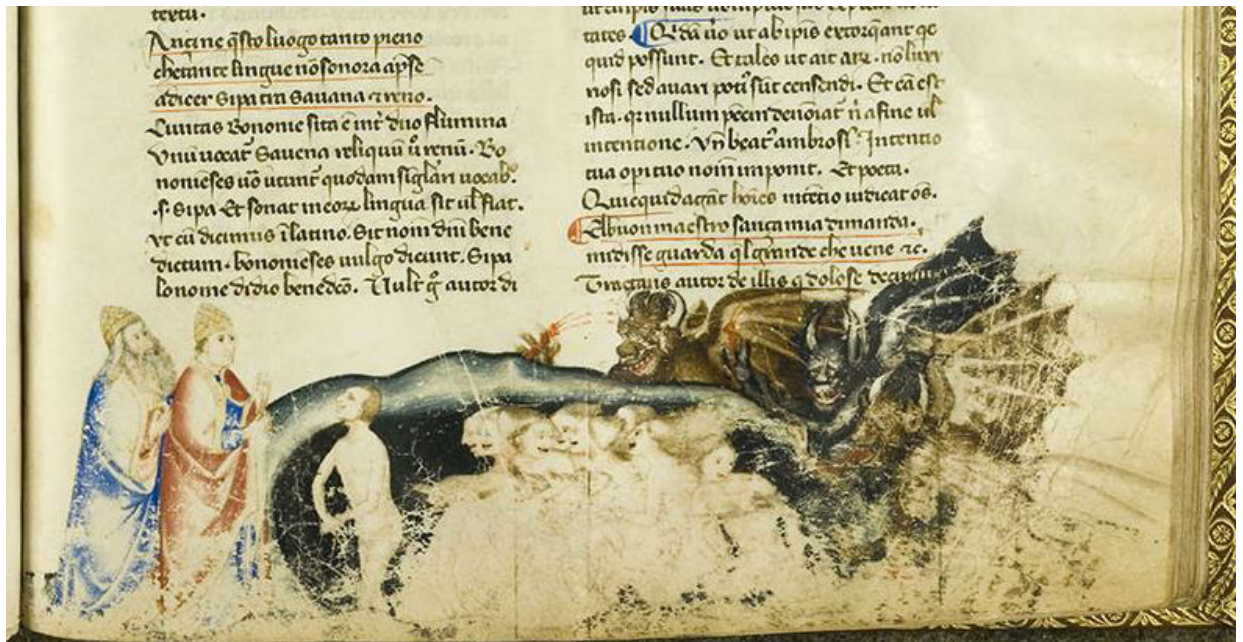 textu.
Anzi ne qsto luogo tanto pieno
che tante lingue nō sono ra apse
a dicer sipa tra Savana ⁊ reno.
Civitas Bononie sita ē int duo flumina
Unū vocat Savena reliquū ū renū. Bo
nonieses uō utunt quodam siglari vocab.
.s. sipa Et sonat in eorȝ lingua sit ul fiat.
ut cū dicimus ī latino. Sit nom dni bene
dictum. bononieses vulgo dicunt. Sipa
lo nome didio benedco. Vult g autor di
tates. Qdā uo ut ab ipis extorqant qc
quid possunt. Et tales ut ait
nosi sed avari poti sūt censendi. Et cā est
ista. qr nullum peccm denoīat n a fine ul
intentione. Vn beat ambrosi. Intentio
tua opi tuo nom imponit. Et poeta.
Quicquid agāt hoies intētio iudicat os.
El buon maestro sança mia dimanda.
mi disse guarda ql grande che vene ⁊c.
Tractat autor de illis q dolose